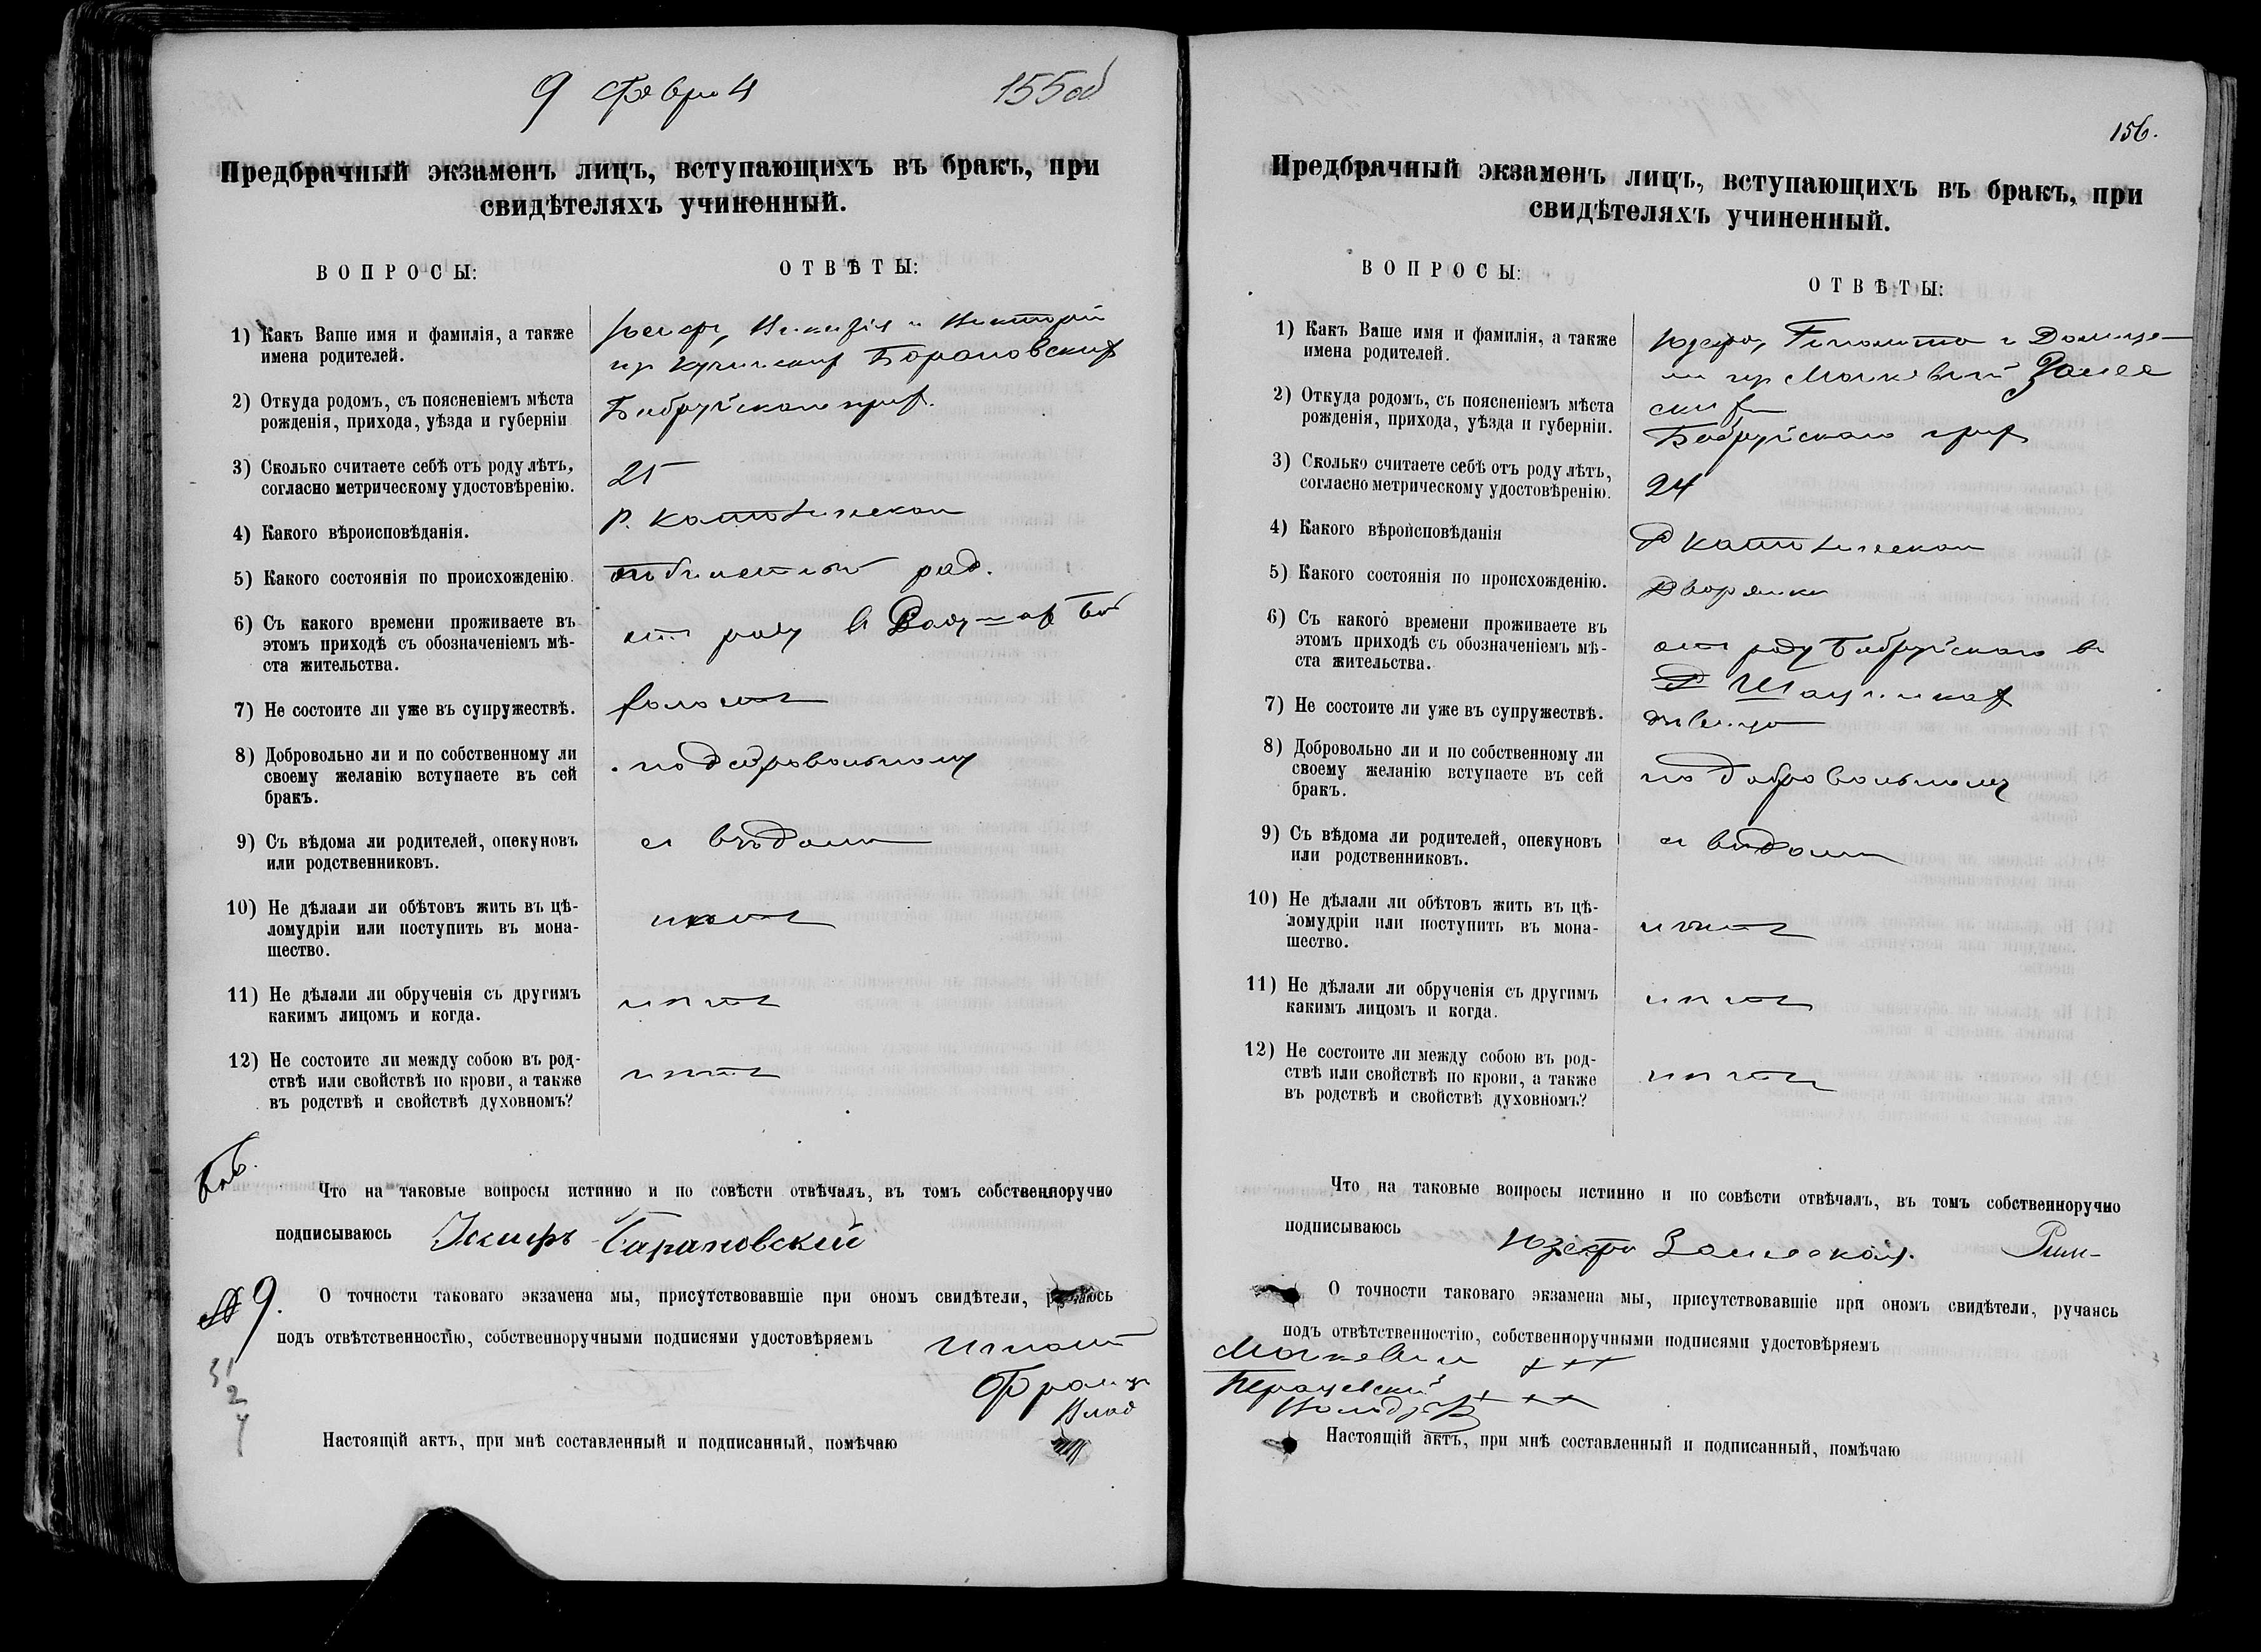 9 Февра 4
155об
Предбрачный экзаменъ лицъ, вступающихъ въ бракъ, при
свидѣтеляхъ учиненный.
ВОПРОСЫ:
ОТВѢТЫ:
1) Какъ Ваше имя и фамилія, а также
имена родителей.
Барановских
2) Откуда родомъ, съ поясненіемъ мѣста
рожденія, прихода, уѣзда и губерніи
Бобруйскаго прих.
3) Сколько считаете себѣ отъ роду лѣтъ,
согласно метрическому удостовѣренію.
25
4) Какого вѣроисповѣданія.
Р. Католическаго
5) Какого состоянія по происхожденію.
6) Съ какого времени проживаете въ
этомъ приходѣ съ обозначеніемъ мѣ-
ста жительства.
от роду в
7) Не состоите ли уже въ супружествѣ.
холост
8) Добровольно ли и по собственному ли
своему желанію вступаете въ сей
бракъ.
по добровольному
9) Съ вѣдома ли родителей, опекуновъ
или родственниковъ.
с вѣдома
10) Не дѣлали ли обѣтовъ жить въ цѣ-
ломудріи или поступить въ мона-
шество.
нѣт
11) Не дѣлали ли обрученія съ другимъ
какимъ лицомъ и когда.
нѣт
12) Не состоите ли между собою въ род-
ствѣ или свойствѣ по крови, а также
въ родствѣ и свойствѣ духовномъ?
нѣт
Боб.
Что на таковые вопросы истинно и по совѣсти отвѣчалъ, въ томъ собственноручно
подписываюсь Іосифъ Барановскій
№ 9.
О точности таковаго экзамена мы, присутствовавшіе при ономъ свидѣтели,
подъ отвѣтственностію, собственноручными подписями удостовѣряемъ Игнат
Франц
Влад
Настоящій актъ, при мнѣ составленный и подписанный, помѣчаю
156.
Предбрачный экзаменъ лицъ, вступающихъ въ бракъ, при
свидѣтеляхъ учиненный.
ВОПРОСЫ:
ОТВѢТЫ:
1) Какъ Ваше имя и фамилія, а также
имена родителей.
2) Откуда родомъ, съ поясненіемъ мѣста
рожденія, прихода, уѣзда и губерніи.
Бобруйскаго прих
3) Сколько считаете себѣ отъ роду лѣтъ,
согласно метрическому удостовѣренію.
24
4) Какого вѣроисповѣданія
Р Католическаго
5) Какого состоянія по происхожденію.
Дворянка
6) Съ какого времени проживаете въ
этомъ приходѣ съ обозначеніемъ мѣ-
ста жительства.
от роду Бобруйскаго в
7) Не состоите ли уже въ супружествѣ.
дѣвица
8) Добровольно ли и по собственному ли
своему желанію вступаете въ сей
бракъ.
по добровольному
9) Съ вѣдома ли родителей, опекуновъ
или родственниковъ.
с видома
10) Не дѣлали ли обѣтовъ жить въ цѣ-
ломудріи или поступить въ мона-
шество.
нѣт
11) Не дѣлали ли обрученія съ другимъ
какимъ лицомъ и когда.
нѣт
12) Не состоите ли между собою въ род-
ствѣ или свойствѣ по крови, а также
въ родствѣ и свойствѣ духовномъ?
нѣт
Что на таковые вопросы истинно и по совѣсти отвѣчалъ, въ томъ собственноручно
подписываюсь
О точности таковаго экзамена мы, присутствовавшіе при ономъ свидѣтели, ручаясь
подъ отвѣтственностію, собственноручными подписями удостовѣряемъ
+++
+++
Настоящій актъ, при мнѣ составленный и подписанный, помѣчаю